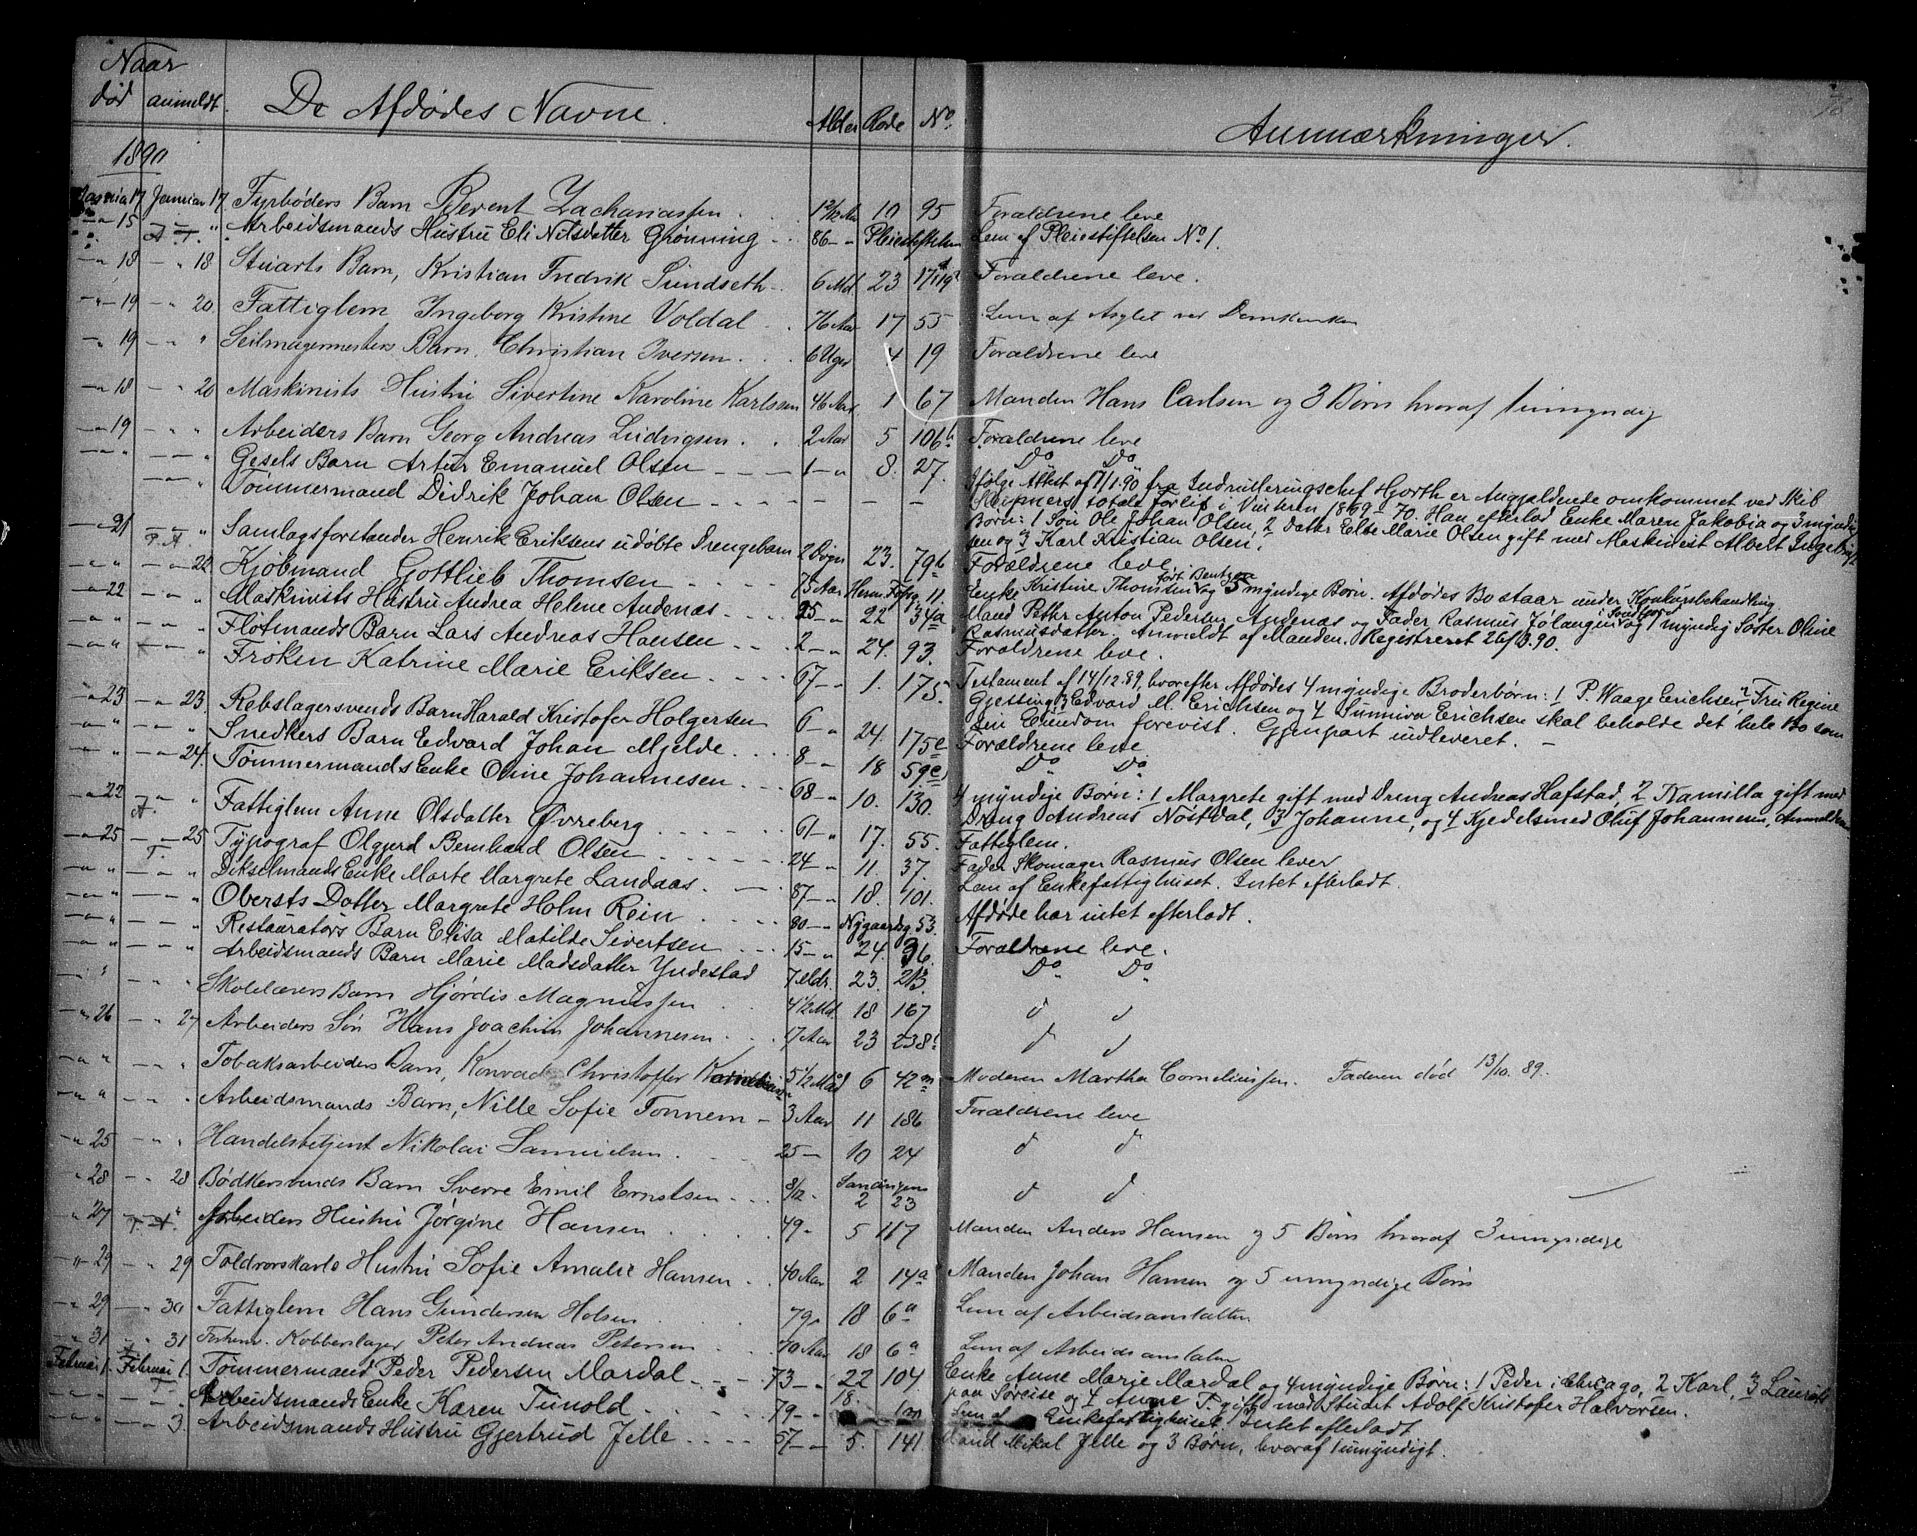 Naar
død anmeldt. De Afdødes Navne. Alder Rode No. Anmærkninger.
1890
Januar 17 Januar 17 Fyrbøders Barn Bevent Zachariassen . . 10 95 Forældrene leve
-"- 15 A. T. " Arbeidsmands Hustru Eli Nilsdatter Grønning - 86 -"- Pleiestiftelsen Lem af Pleiestiftelsen No 1.
-"- 18 -"- 18 Stuarts Barn, Kristian Fredrik Sundseth - 6 Md. 23 Forældrene leve.
-"- 19 -"- 20 Fattiglem Ingeborg Kristine Voldal . 76 Aar 17 55 Lem af Asylet ved Domkirken
" 19 -"- " Seilmagermesters Barn, Christian Iversen . . 6 Uger 4 19 Forældrene leve
-"- 18 -"- 20 Maskinists Hustru Sivertine Karoline Karlssen 46 Aar 1 67 Manden Hans Carlsen og 3 Børn hvoraf 1 umyndig
-"- 19 -"- " Arbeiders Barn Georg Andreas Ludvigsen . . 2 Aar 5 106b Forældrene leve
-"- " -"- " Gesels Barn Artur Emanuel Olsen - - - - 1 -"- 8. 27. Do Do
-"- " Tømmermand Didrik Johan Olsen - - - - - - - Ifølge Attest af 17/1.90 fra Indrulleringschef Hjorth er Angjældende omkommet ved Skib
Sleipners totale Forlis i Vinteren 1869 - 70. Han efterlod Enke Maren Jakobia og 3 myndige
Børn: 1 Søn Ole Johan Olsen, 2 Datter Elise Marie Olsen gift med Maskinist Albert
sen og 3 Karl Kristian Olsen.
-"- 21 T. A. " Samlagsforstander Henrik Eriksens udøbte Drengebarn 2 Døgn 23. 79b Forældrene leve
-"- " -"- 22 Kjøbmand Gottlieb Thomsen - - - - - 75 Aar 11 Enke Kristine Thomsen født Bentzen og 5 myndige Børn. Afdødes Bo staar under Konkursbehandling.
-"- 22 -"- " Maskinists Hustru Andrea Helene Andenæs - - - 25 -"- 22 34a Mand Petter Anton Pedersen Andenæs og Fader Rasmus i Søndfjord og 1 myndig Søster Oline
Rasmusdatter. Anmeldt af Manden. Registreret 26/3.90.
-"- " -"- " Fløtmands Barn Lars Andreas Hansen - - - 2 -"- 24. 93. Forældrene leve.
-"- " -"- " Frøken Katrine Marie Eriksen - - - - 67 -"- 1. 175 Testament af 14/12.89, hvorefter Afdødes 4 myndige Broderbørn: 1 P. Waage Erichsen 2 Fru Regine
Gjessing 3 Edvard M. Erichsen og 4 Sunniva Erichsen skal beholde det hele Bo som
sin Eiendom forevist. Gjenpart indleveret. -
-"- 23 -"- 23. Rebslagersvends Barn Harald Kristofer Holgersen 6 -"- 24. 175e Forældrene leve
-"- " -"- " Snedkers Barn Edvard Johan Mjelde - - - 8 -"- 18 59e Do Do
-"- " -"- 24. Tømmermands Enke Oline Johannesen - - - 68 -"- 10. 130. 4 myndige Børn: 1 Margrete gift med Dreng Andreas Hafstad, 2 Kamilla gift med
Dreng Andreas Nøstdal, 3 Johanne, og 4 Kjedelsmed Oluf Johannesen, Anmelderen
-"- 22 A -"- " Fattiglem Anne Olsdatter Øvreberg - - - - 61 -"- 17. 55. Fattiglem.
-"- 25 -"- 25 Typograf Olgjerd Bernhard Olsen - - - - - 24 -"- 11. 37. Fader Skomager Rasmus Olsen lever
-"- " T. -"- " Dikselmands Enke Marte Margrete Landaas. - - 87 -"- 18. 101. Lem af Enkefattighuset. Intet efterladt.
-"- " -"- " Obersts Datter Margrete Holm Rein . - - - 80 -"- Nygaardsg. 53. Afdøde har intet efterladt.
-"- " -"- " Restauratørs Barn Elisa Matilde Sivertsen - - - 15 -"- 24. 36. Forældrene leve.
-"- " -"- " Arbeidsmands Barn Marie Madsdatter Yndestad 7 Mdr. 23. 213. Do Do
" " " Skolelærers Barn Hjørdis Magnussen . . 4 1/2 Md. 18 167 d d
-"- 26 -"- 27 Arbeiders Søn Hans Joachim Johannesen . . . 17 Aar 23 238 d d
-"- " -"- " Tobaksarbeiders Barn, Konrad Christoffer 5 1/2 Md 6 42 Moderen Martha Corneliussen. Faderen død 13/10.89.
-"- " -"- " Arbeidsmands Barn, Nille Sofie Tonnem - 3 Aar 11 186 Forældrene leve
-"- 25 -"- " Handelsbetjent Nikolai Samuelsen . . . 25 - 10 24 d d
" 28 -"- 28 Bødkersvends Barn Sverre Emil Ernstsen - - 8/12 - Sandvigen 2 23 d d
" 27 T. A. " Arbeiders Hustru Jørgine Hansen . . . 49 - 5 117 Manden Anders Hansen og 5 Børn hvoraf 3 umyndige
" 29 -"- 29 Toldrorskarls Hustru Sofie Amalie Hansen . . 40 Aar 2 14a Manden Johan Hansen og 5 umyndige Børn
-"- 29 -"- 30 Fattiglem Hans Gundersen Holsen . . . 79 - 18 6a Lem af Arbeidsanstalten
-"- 31 -"- 31 Forhenv. Kobberslager Peter Andreas Petersen . . 70 Aar 18 6a Lem af Arbeidsanstalten
Februar 1 Februar 1. Tømmermand Peder Pedersen Mardal - - - . 73 - " 22 104 Enke Anne Marie Mardal og 4 myndige Børn: 1 Peder i Chicago, 2 Karl, 3 Laurits
paa Søreise og 4 Anne T. gift med Studst Adolf Kristofer Halvorsen.
-"- " T. -"- . Arbeidsmands Enke Karen Tunold . - - - - 79 -"- 18. Lem af Enkefattighuset Intet efterladt
-"- " -"- 3. Arbeidsmands Hustru Gjertrud Jelle - - - - 57 -"- 5. 141 Mand Mikal Jelle og 3 Børn, hvoraf 1 umyndigt.